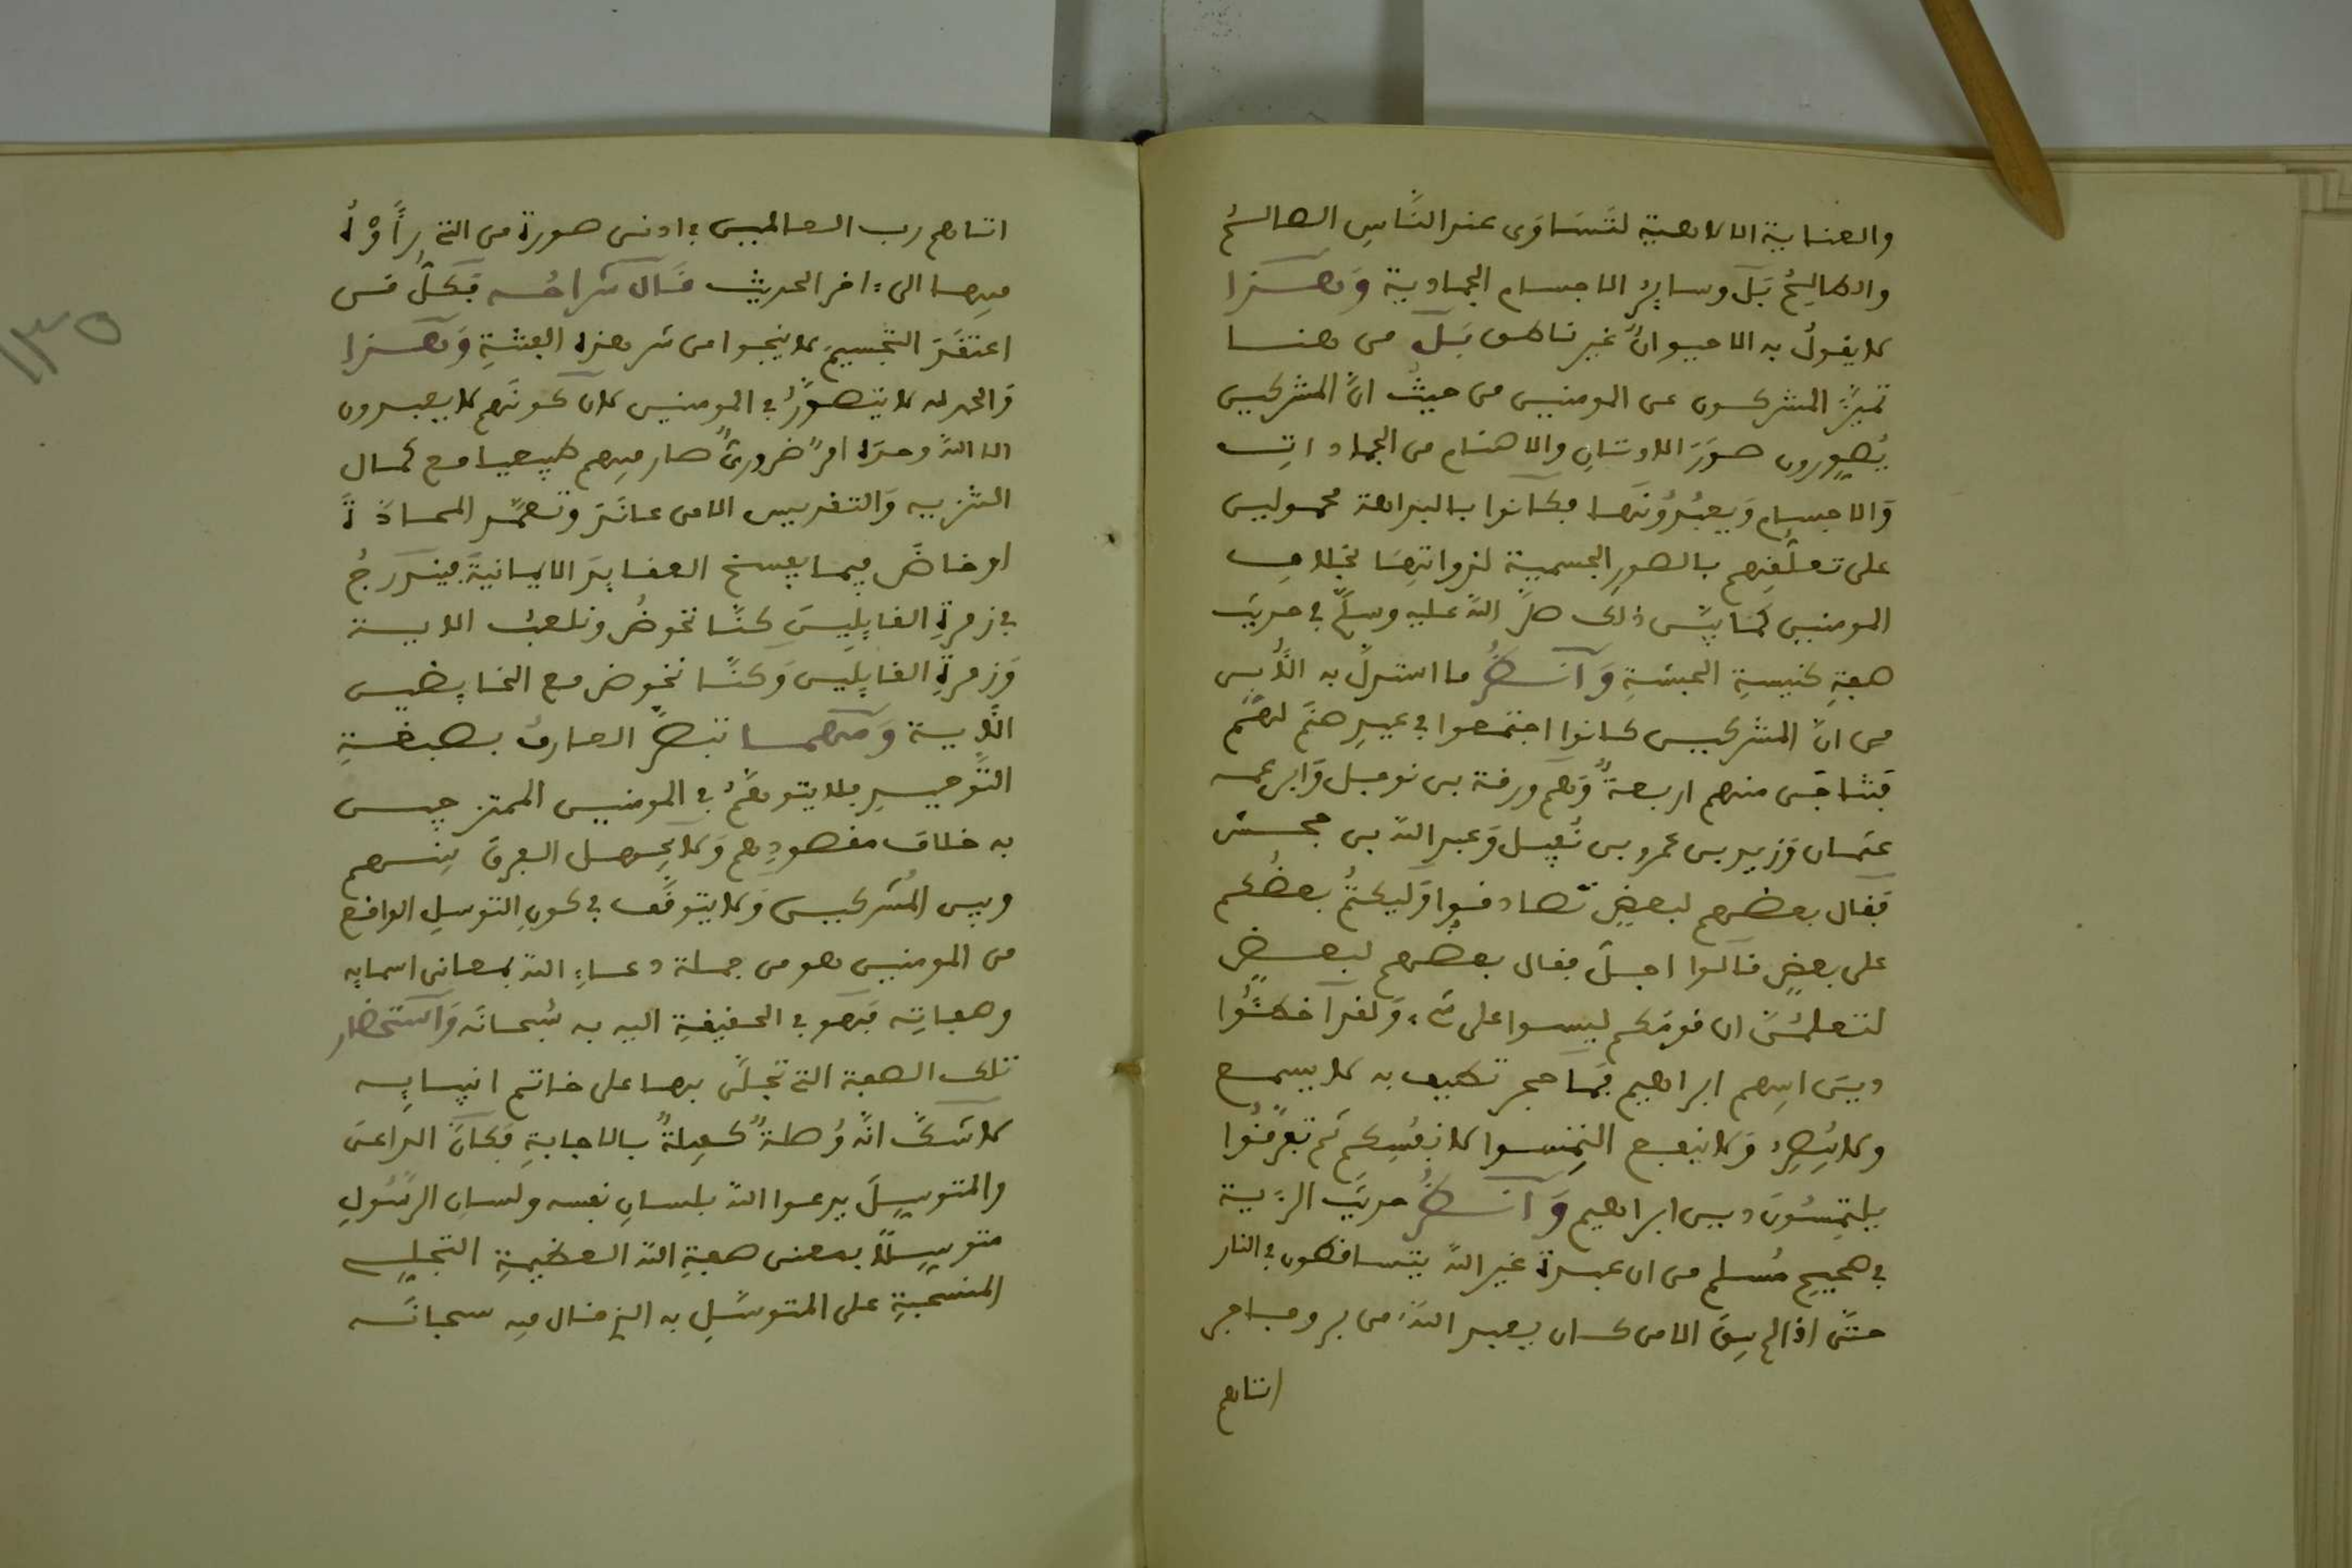 والعناية الالاهية لتساوى عند النَّاسِ الصالحُ
والطالحُ بَل وسايرُ الاجسام الجمادية وَهـٰـذا
لا يقولُ به الا حيوانٌ غير ناطق بَل من هنا
تميزَّ المشركون عن المومنين من حيثُ انَّ المشركين
يُصوِّرون صوَرَ الاوثانِ والاصنام من الجمادات
وَالاجسام وَيعبُدُونَها فكانوا بالبداهة محمولين
على تعلُّقِهم بالصورِ الجسمية لذواتهَا بخلافِ
المومنين كمَا بيَّن ذلك صلَّ اللهُ عليه وسلَّم في حديث
صفةِ كنيسةِ الحبشةِ وَانـظُر ما استدلَّ به الأُبي
من انَّ المشركين كانوا اجتمعوا في عيدِ صنَم لهُم
فتناجَى منهم اربعةٌ وَهم ورقة بن نوفل وَابن عمه
عثمان وَزيد بن عمرو بن نُفيل وَعبد الله بن جحش
فقال بعضهم لبعضٍ تصادقوا وَليكتُم بعضُكم
على بعضٍ قالوا اجل فقال بعضهم لبعضٍ
لتعلمُنَّ ان قومَكم ليسوا على شيء وَلقد اخطَئُوا
دينَ ابيهم ابراهيم فمَا حجر تطيف به لا يسمع
ولا يُبصِر وَلا ينفع التمِسوا لانفُسِكم ثم تفرَّقُوا
يلتمِسُونَ دين ابراهيم وَانـظُر حديثَ الرؤية
في صحيح مُسلم من ان عبدة غير اللهِ يتساقطون في النار
حتَّى اذا لم يبقَ الا من كان يعبد اللهَ من بر وفاجر
اتاهم
اتاهم رب العالمين في ادنى صورة من التي رأوْهُ
فيها الى ءاخر الحديث قال شراحُه فكلُّ من
اعتقدَ التجسيمَ لا ينجوا من شر هذه الفتنةِ وَهـٰـذا
وَالحمد لله لا يتصوَّرُ في المومنين لان كونَهم لا يعبدون
الا اللهَ وحدَه امرٌ ضروريٌّ صار فيهم طبيعيا مع كمال
التنزيه وَالتقديس الا من عانَدَ وتعمَّد المحادَّةَ
او خاضَ فيما يفسخ العقايدَ الايمانيةَ فيندرجُ
في زمرةِ القايلينَ كنَّا نخوضُ ونلعبُ الاية
وَزمرةِ القايلينَ وَكنَّا نخوض مع الخايضين
الأية وَمهمـا نبطرَّ العارف بصبغةِ
التَّوحيدِ فلا يتوهَّمُ في المومنين الممتزجين
به خلافَ مقصودِهم وَلا يجهل الفرقَ بينهم
وبين المُشركين وَلا يتوقَّف في كونِ التوسلِ الواقع
من المومنين هو من جملة دعاءِ اللهِ بمعاني اسمايه
وصفاتِه فهو في الحقيقةِ اليه به سُبحانَه وَاستحضار
تلك الصفة التي تجلَّى بها على خاتم انبيايِه
لا شكَّ انَّه وُصلةٌ كفيلةٌ بالاجابةِ فكانَ الداعى
والمتوسِّلَ يدعوا اللهَ بلسانِ نفسه ولسانِ الرسُولِ
متوسِّلًا بمعنى صفةِ اللهِ العظيمةِ التجلي
المنسحبةِ على المتوسَّلِ به الذي قال فيه سبحانَه